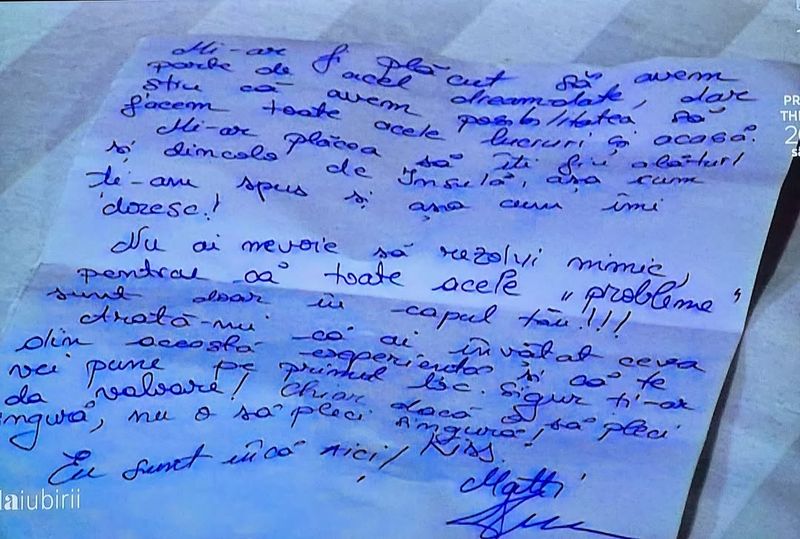 Mi-ar fi plăcut să avem
parte de acel dreamdate, dar
știu că avem posibilitatea să
facem toate acele lucruri și acasă.
Mi-ar plăcea să îți fiu alături
și dincolo de Insulă, așa cum
ți-am spus și așa cum îmi
doresc!
Nu ai nevoie să rezolvi nimic,
pentru că toate acele „probleme”
sunt doar în capul tău!!!
Arată-mi că ai învățat ceva
din această experiență și că te
vei pune pe primul loc. Sigur ți-ar
da valoare! Chiar dacă o să pleci
singură, nu o să pleci singură!
Eu sunt încă aici! Kiss.
Matti
laiubirii
PR
TH
2